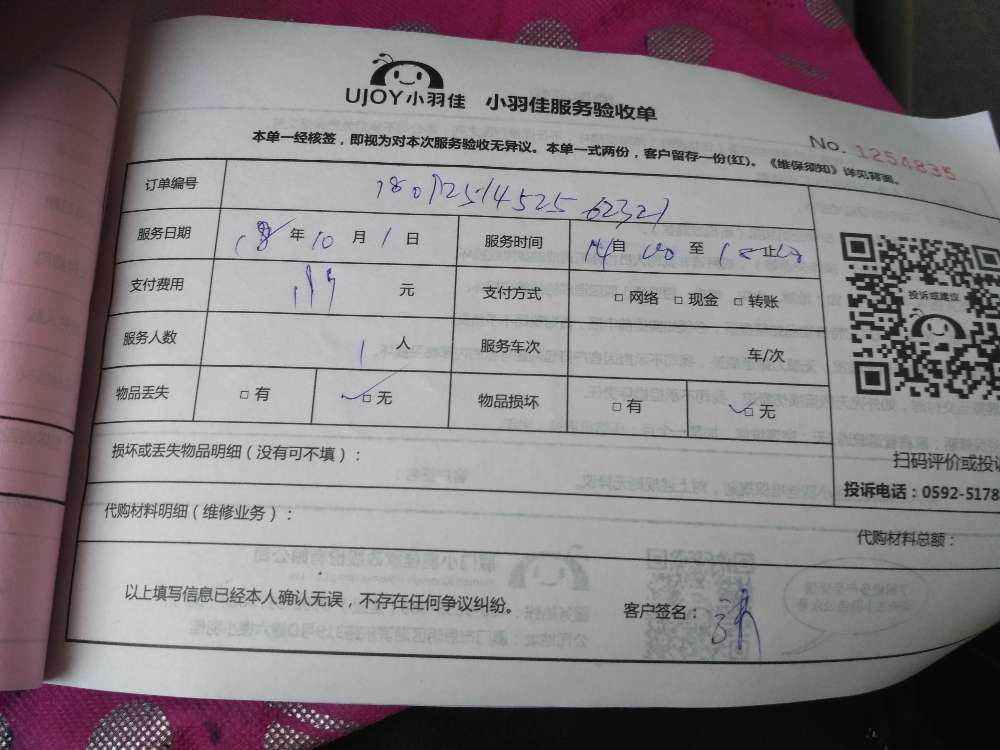 UJOY小羽佳 小羽佳服务验收单
No. 1254835
本单一经核签，即视为对本次服务验收无异议。本单一式两份，客户留存一份(红)。《维保须知》详见背面。
订单编号
服务日期 18 年 10 月 1 日 服务时间 14 自 00 至 18 止 00
支付费用 元 支付方式 □ 网络 □ 现金 □ 转账
投诉或建议
服务人数 1 人 服务车次 车/次
物品丢失 □ 有 ✓□ 无 物品损坏 □ 有 ✓□ 无
扫码评价或投诉
损坏或丢失物品明细（没有可不填）：
投诉电话：0592-5178
代购材料明细（维修业务）：
代购材料总额：
以上填写信息已经本人确认无误，不存在任何争议纠纷。 客户签名：